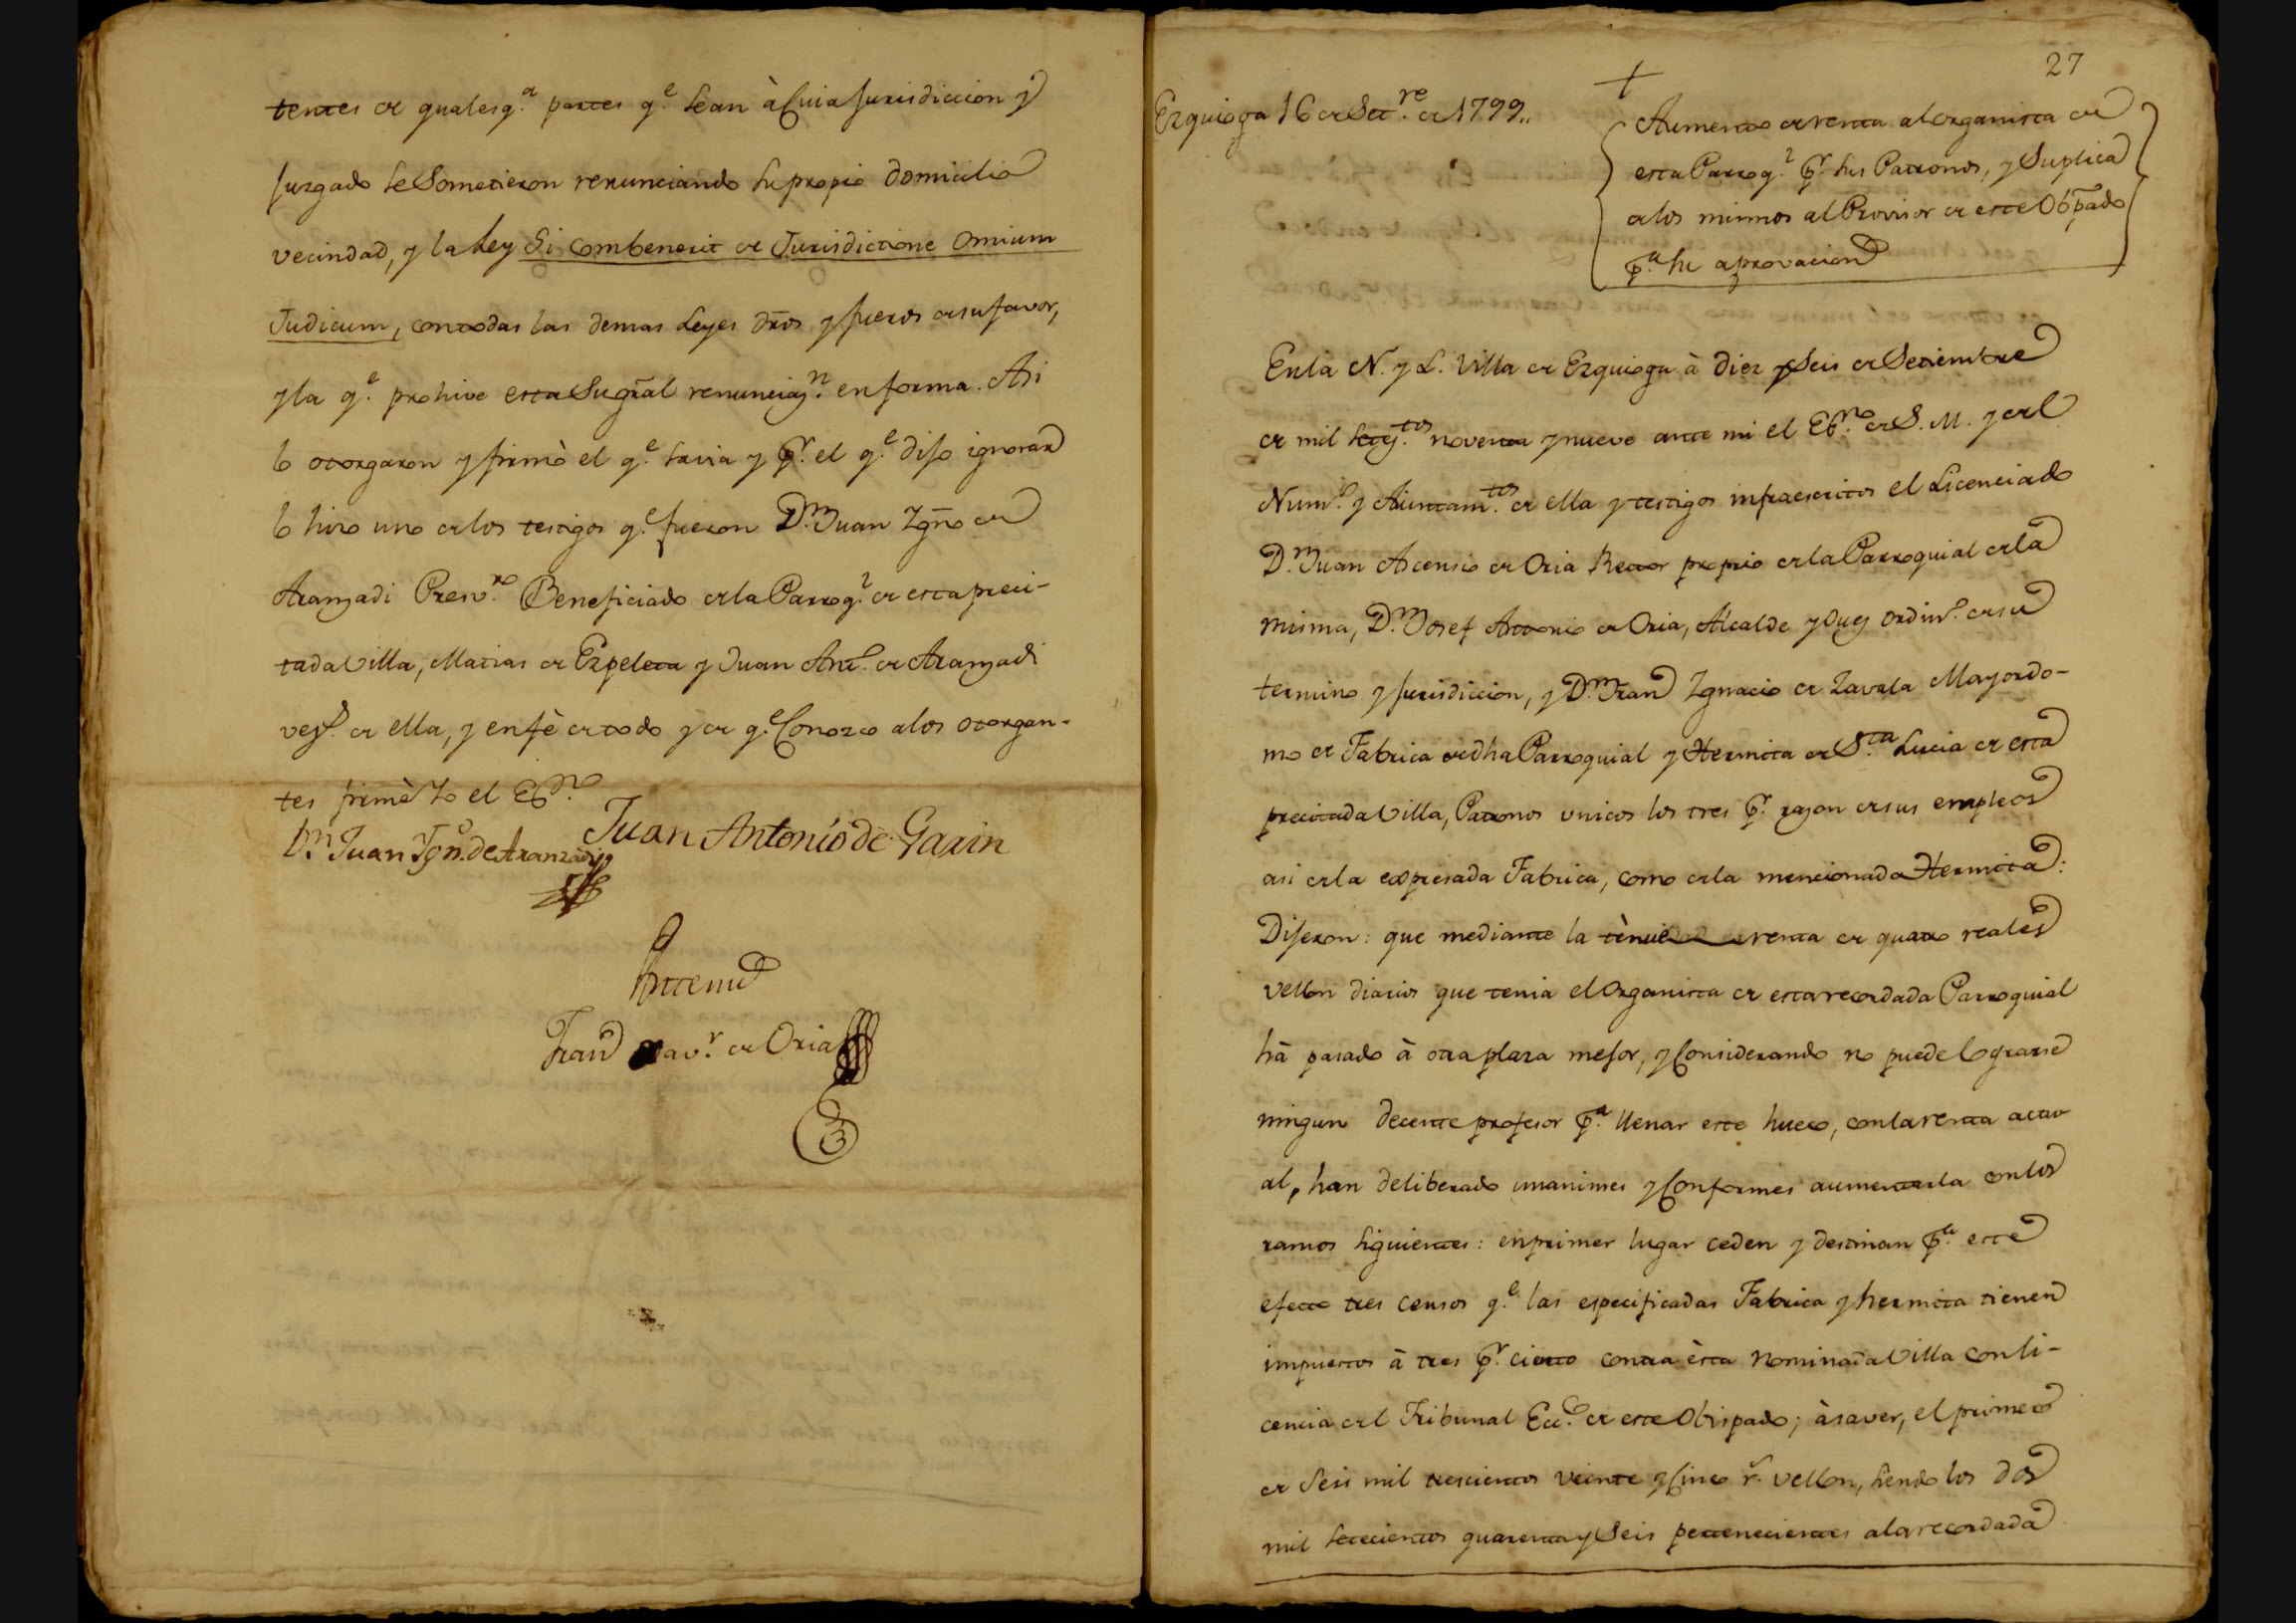 tentes de qualesq.ª partes q.e sean à Cuia Jurisdiccion y
Juzgado se Sometieron renunciando su propio domicilio
vecindad, y la Ley Si Combenerit de Jurisdictione Omium
Judicum, con todas las demas Leyes dr̃os y fueros de su favor,
y la q.e prohive esta Su gr̃al renunciaz.n en forma. Asi
lo otorgaron y firmò el q.e savia y p.r el q.e dijo ignorar
lo hizo uno de los testigos q.e fueron D.n Juan Ygnõ de
Aranzadi Presv.ro Beneficiado de la Parroq.l de esta preci-
tada Villa, Matias de Ezpeleta y Juan Ant.o de Aranzadi
vez.s de ella, y en fè de todo y de q.e Conozco a los otorgan-
tes firmè Yo el Es.no
D.n Juan Ygn.o de Aranzadi
Juan Antonio de Garin
Antemi
Fran.co Xav.r de Oria
27
Ezquioga 16 de Set.re de 1799..
Aumento de renta al organista de
esta Parroq.l p.r sus Patronos, y Suplica
de los mismos al Provisor de este Obp̃ado
p.a su aprovacion
En la N. y L. Villa de Ezquioga à diez y Seis de Setiembre
de mil setez.tos noventa y nueve ante mi el Es.no de S. M. y del
Num.o y Aiuntam.tos de ella y testigos infraescritos el Licenciado
D.n Juan Ascensio de Oria Rector propio de la Parroquial de la
misma, D.n Josef Antonio de Oria, Alcalde y Juez ordin.o de su
termino y jurisdiccion, y D.n Fran.co Ygnacio de Zavala Mayordo-
mo de Fabrica de dha Parroquial y Hermita de S.ta Lucia de esta
precitada Villa, Patronos unicos los tres p.r razon de sus empleos
asi de la expresada Fabrica, como de la mencionada Hermita:
Dijeron: que mediante la tènue renta de quatro reales
vellon diarios que tenia el Organista de esta recordada Parroquial
hà pasado à otra plaza mejor, y Considerando no puede lograrse
ningun decente profesor p.a llenar este hueco, con la renta actu
al, han deliberado unanimes y Conformes aumentarla con los
ramos siguientes: en primer lugar ceden y destinan p.a este
efecto tres censos q.e las especificadas Fabrica y hermita tienen
impuestos à tres p.r ciento contra èsta Nominada Villa con li-
cencia del Tribunal Ecc.o de este Obispado; à saver, el primero
de Seis mil trescientos veinte y Cinco r.s vellon, siendo los dos
mil setecientos quarenta y Seis pertenecientes a la recordada